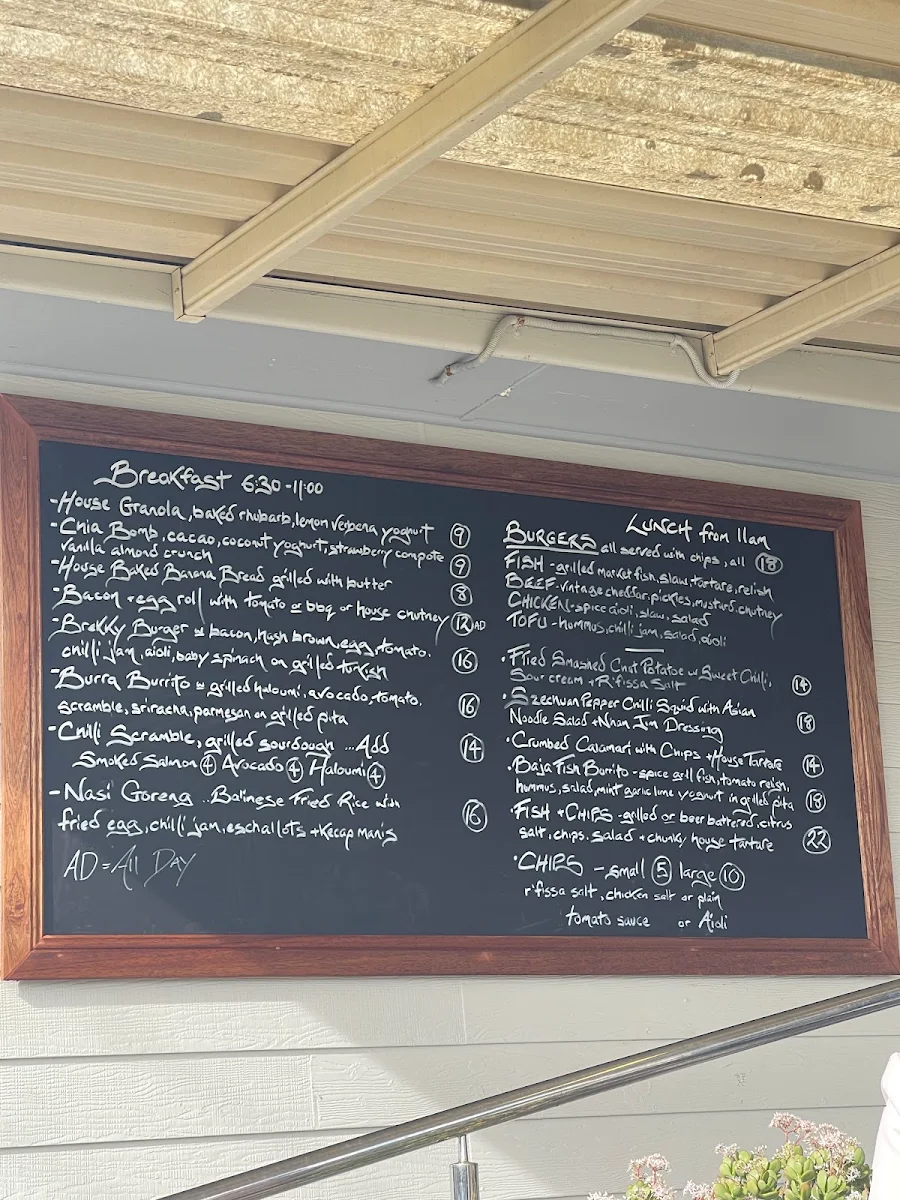 Breakfast 6:30 - 11:00
- House Granola, baked rhubarb, lemon verbena yoghurt 9
- Chia Bomb, cacao, coconut yoghurt, strawberry compote
vanilla almond crunch 9
- House Baked Banana Bread grilled with butter 8
- Bacon + egg roll with tomato or bbq or house chutney 12 AD
- Brekky Burger w bacon, hash brown, egg, tomato,
chilli jam, aioli, baby spinach on grilled turkish 16
- Burra Burrito w grilled haloumi, avocado, tomato,
scramble, sriracha, parmesan on grilled pita 16
- Chilli Scramble, grilled sourdough ... Add 14
Smoked Salmon 4 Avocado 4 Haloumi 4
- Nasi Goreng .. Balinese Fried Rice with
fried egg, chilli jam, eschallots + Kecap Manis 16
AD = All DAY
LUNCH from 11am
BURGERS all served with chips, all 18
FISH - grilled market fish, slaw, tartare, relish
BEEF - vintage cheddar, pickles, mustard, chutney
CHICKEN - spice aioli, slaw, salad
TOFU - hummus, chilli jam, salad, aioli
· Fried Smashed Chat Potatoe w Sweet Chilli,
Sour cream + R'fissa Salt 14
· Szechuan Pepper Chilli Squid with Asian
Noodle Salad + Nhan Jim Dressing 18
· Crumbed Calamari with Chips + House Tartare 14
· Baja Fish Burrito - spice grill fish, tomato relish,
hummus, salad, mint garlic lime yoghurt in grilled pita 18
· FISH + CHIPS - grilled or beer battered, citrus
salt, chips, salad + chunky house tartare 22
· CHIPS - small 5 large 10
r'fissa salt, chicken salt or plain
tomato sauce or Aioli